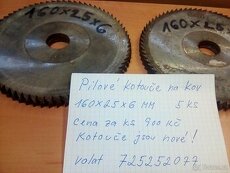 160x25x6
160x25x6
Pilové kotouče na kov
160x25x6 MM 5 ks
Cena za ks 900 kč
Kotouče jsou nové!
Valat 725252077